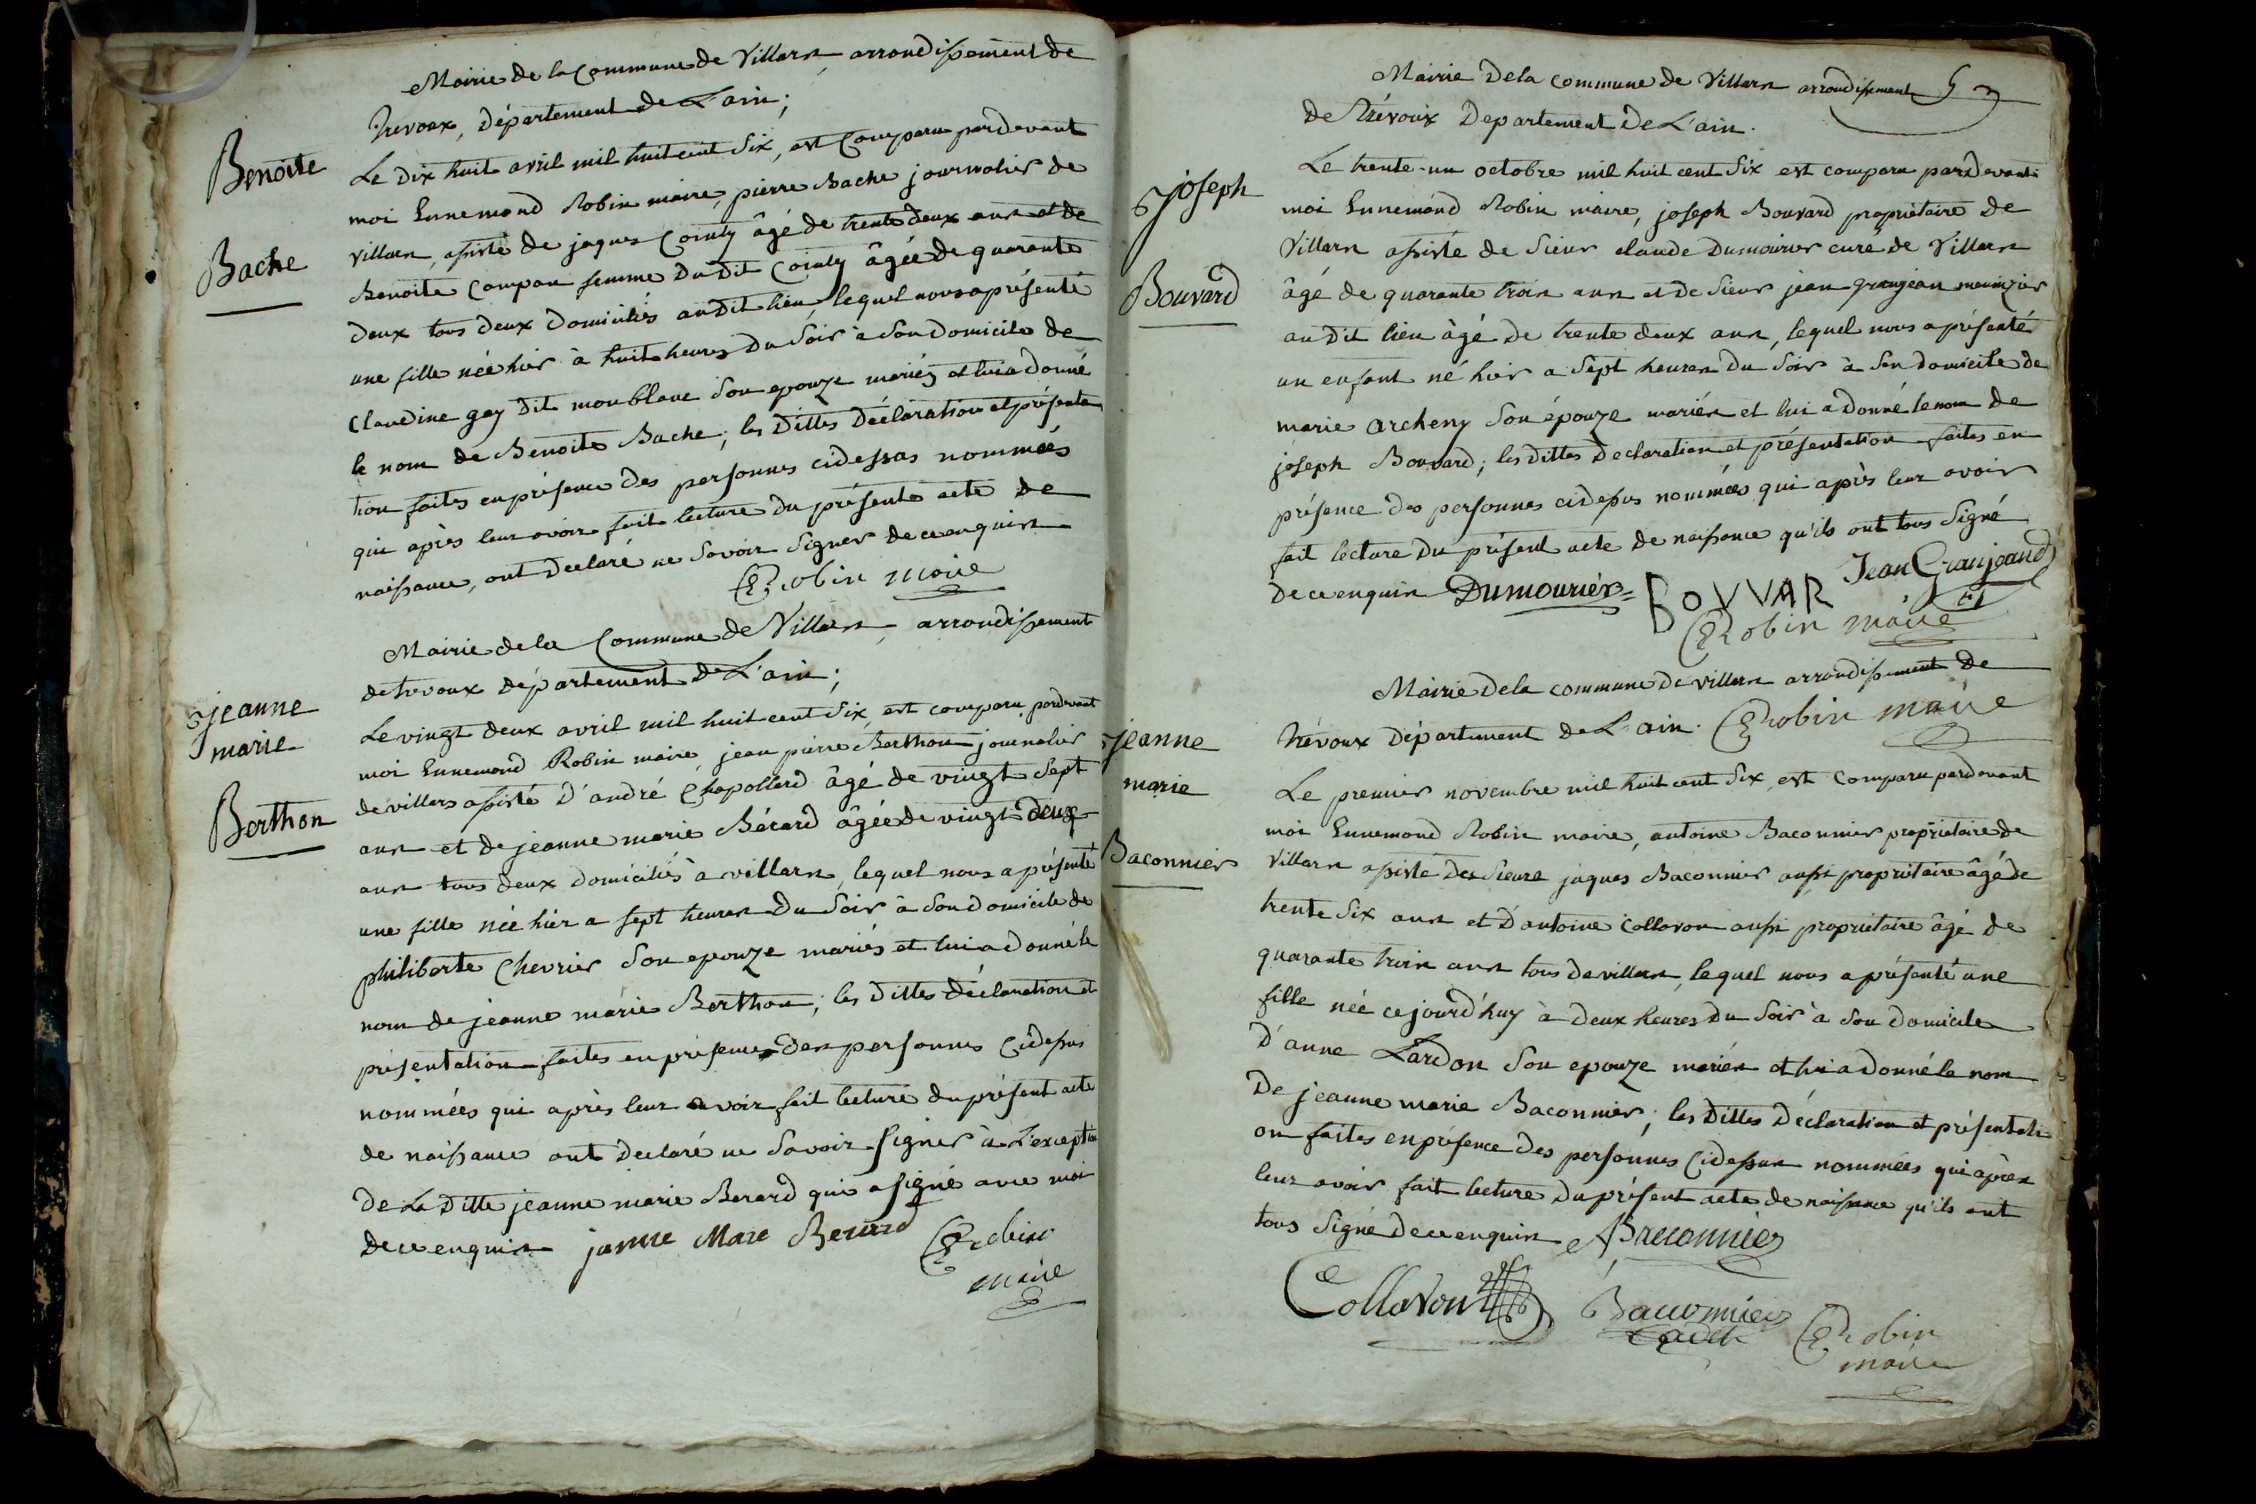 Mairie de la Commune de Villars arrondissement de
Trevoux, département de L'ain;
Benoite
Bache
Le dix huit avril mil huit cent Six, est Comparu pardevant
moi Ennemond Robin maire, pierre Bache journalier de
villars, assisté de jaques Cointy âgé de trente deux ans et de
Benoite Compan femme Du dit Cointy âgée de quarante
deux tous deux domiciliés audit lieu, lequel nous a présenté
une fille née hier à huit heures du Soir à Son domicile de
Claudine gay dit monblanc Son epouze mariés et lui a donné
le nom de Benoite Bache; les dittes Déclaration et présenta
tion faites en présence des personnes cidessus nommées
qui après leur avoir fait lecture du présente acte de
naissance, ont declaré ne Savoir Signer de ce enquis
E Robin maire
Mairie de la Commune de Villars, arrondissement
de trevoux département de L'ain;
jeanne
marie
Berthon
Le vingt deux avril mil huit cent Six, est comparu pardevant
moi Ennemond Robin maire jean pierre Berthon journalier
de villars assisté d'andré Chapollard âgé de vingt Sept
ans et de jeanne marie Bérard âgée de vingt deux
ans tous deux domiciliés à villars, lequel nous a présenté
une fille née hier a sept heures du Soir à Son domicile de
philiberte Chevrier Son epouze mariés et lui a donné le
nom de jeanne marie Berthon; les dittes déclaration et
présentation faites en présence des personnes Cidessus
nommées qui après leur avoir fait lecture du présent acte
de naissance ont declaré ne Savoir Signer à L'exception
de La Ditte jeanne marie Berard qui a signé avec moi
de ce enquis janne Mare Berard E Robin
maire
Mairie dela commune de Villars arrondissement
de Trévoux Departement De L'ain.
joseph
Bouvard
Le trente-un octobre mil huit cent Six est comparu pardevant
moi Ennemond Robin maire, joseph Bouvard propriétaire de
Villars assisté de Sieur claude Dumourier curé de Villars
âgé de quarante trois ans et de Sieur jean granjean
audit lieu âgé de trente deux ans, lequel nous a présenté
un enfant né hier a Sept heures du Soir à Son domicile de
marie Archeny Son épouze mariés et lui a donné le nom de
joseph Bouvard; les dittes Declaration et présentation faites en
présence des personnes cidessus nommées qui après leur avoir
fait lecture du présent acte de naissance qu'ils ont tous Signé
de ce enquis Dumouriér BOVVAR Jean Granjeand
E Robin maire
Mairie dela commune de villars arrondissement de
trévoux département de L'ain. E Robin maire
jeanne
marie
Baconnier
Le premier novembre mil huit cent Six, est Comparu pardevant
moi Ennemond Robin maire, antoine Baconnier propriétaire de
Villars assisté des Sieurs jaques Baconnier aussi propriétaire âgé de
trente Six ans et d'antoine Collovon aussi propriétaire âgé de
quarante trois ans tous de villars, lequel nous a présenté une
fille née cejourd'huy à deux heures du Soir à Son domicile
D'anne Lardon Son epouze mariés et lui a donné le nom
De jeanne marie Baconnier; les dittes Déclaration et présentati
on faites en présence des personnes Cidessus nommées qui après
leur avoir fait lecture du présent acte de naissance qu'ils ont
tous Signé de ce enquis ABacconnier
Collovon Baconnier
Cadet E Robin
maire